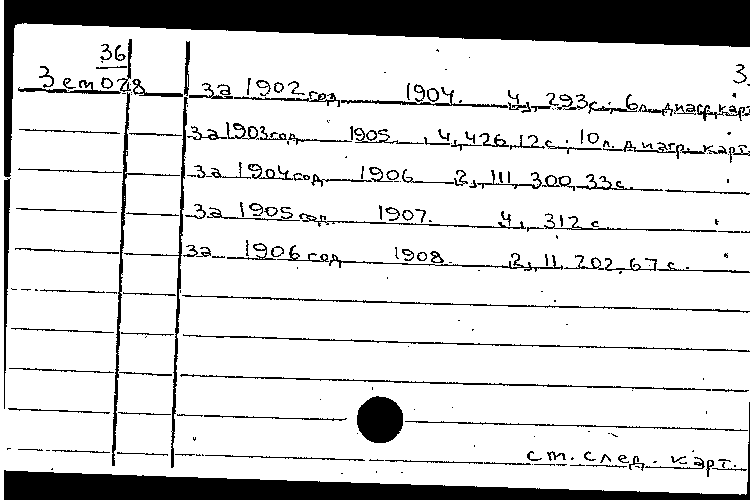 36
3.
3 ет 078 за 1902 год 1904. 4, 293 с.; 6 л. диагр., карт
за 1903 год 1905. , 4, 426, 12 с.; 10 л. диагр. карт.
за 1904 год 1906 2, III, 300, 33 с.
за 1905 год. 1907. 4, 312 с.
за 1906 год 1908. 2, II, 202, 67 с.
ст. след. карт.